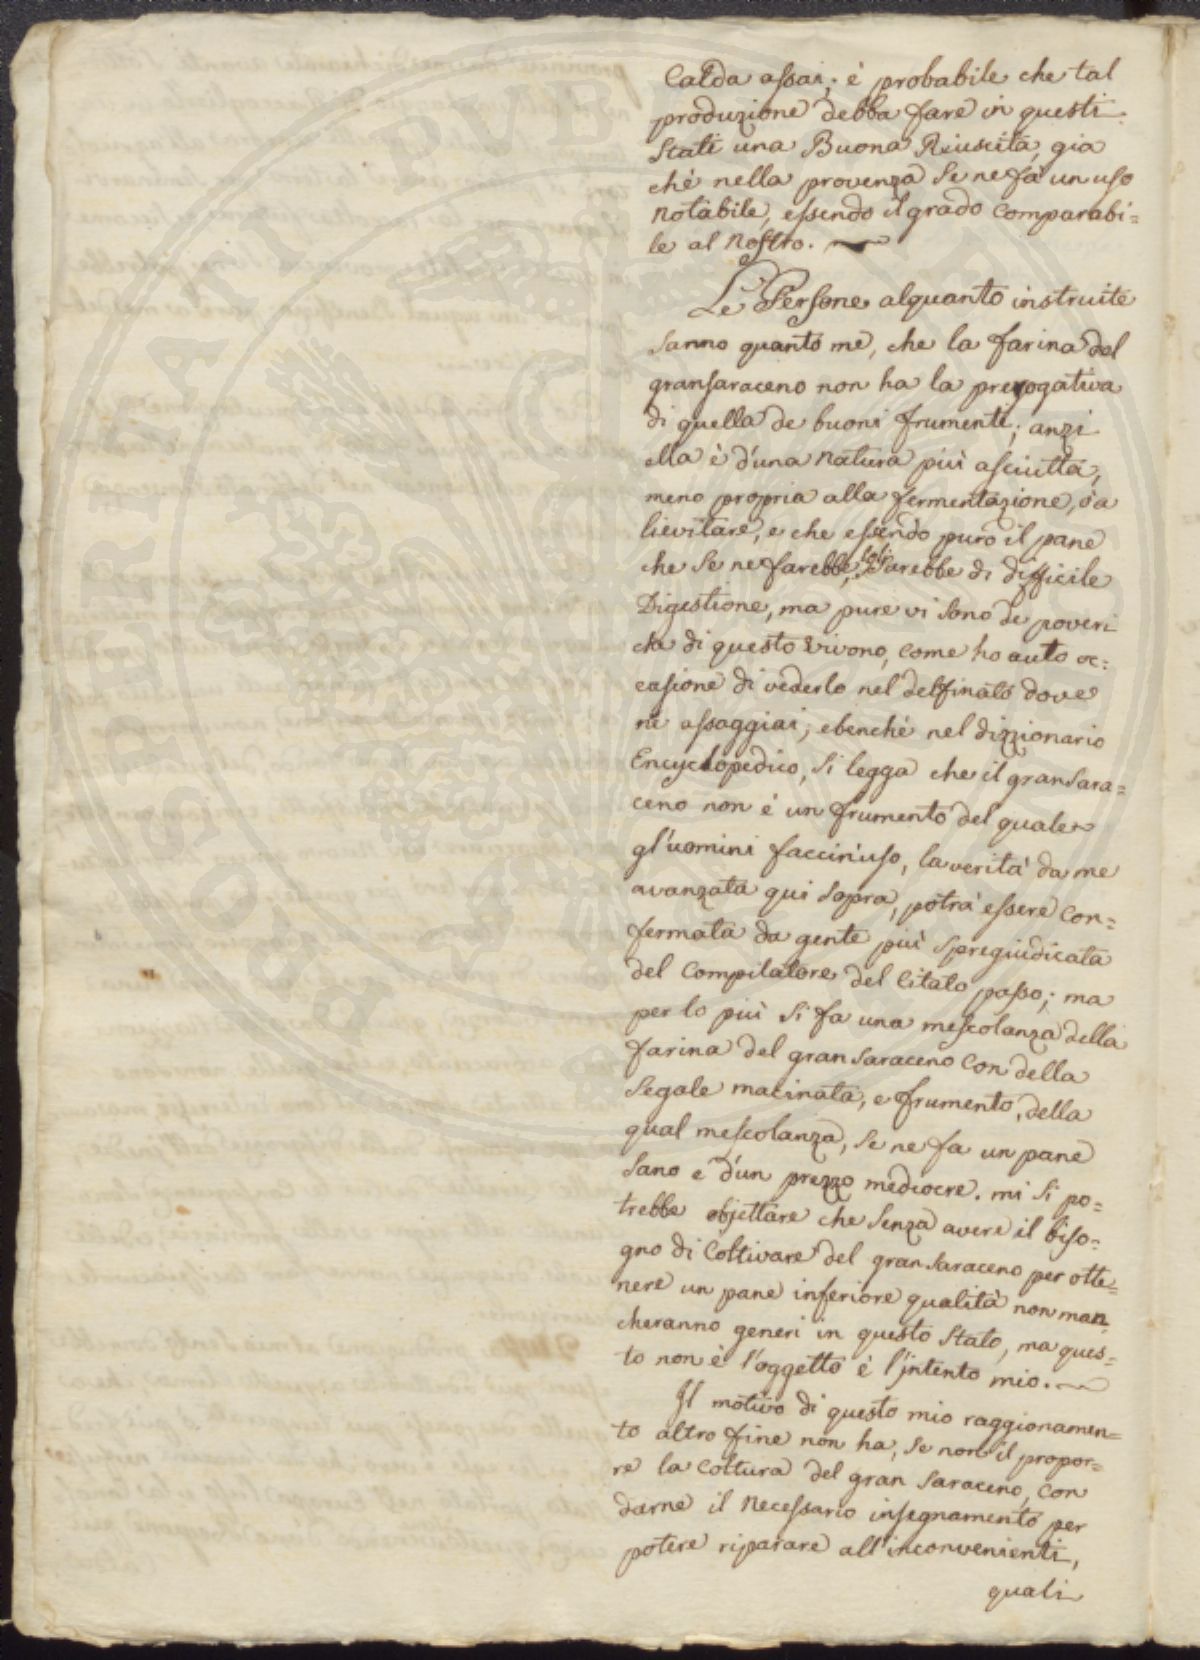 Calda assai; è probabile che tal
produzione debba fare in questi
Stati una Buona Riuscita, gia
chè nella provenza se ne fà un uso
notabile, essendo il grado comparabi=
le al Nostro.
Le Persone alquanto instruite
sanno quanto me, che la farina del
gransaraceno non ha la prerogativa
di quella de buoni frumenti; anzi
ella è d'una natura più asciutta,
meno propria alla fermentazione, ò a
lievitare, e che essendo puro il pane
che se ne farebbe, sarebbe di difficile
Digestione, ma pure vi sono de poveri
che di questo vivono, come ho auto oc=
casione di vederlo nel delfinato dove
ne assaggiai; ebenchè nel dizzionario
Encyclopedico, si legga che il gransara=
ceno non è un frumento del quale
gl'uomini faccin'uso, la verità da me
avanzata qui sopra, potrà essere con=
fermata da gente più spregiudicata
del Compilatore del citato passo; ma
per lo più si fa una mescolanza della
farina del gransaraceno con della
segale macinata, e frumento, della
qual mescolanza, se ne fa un pane
sano e d'un prezzo mediocre. mi si po=
trebbe objettare che senza avere il biso=
gno di Coltivare del gransaraceno per otte=
nere un pane inferiore qualità non man
cheranno generi in questo Stato, ma ques=
to non è l'oggetto è l'intento mio.
Il motivo di questo mio raggionamen=
to altro fine non ha, se non il propor=
re la coltura del gran saraceno, con
darne il necessario insegnamento per
potere riparare all'inconvenienti,
quali